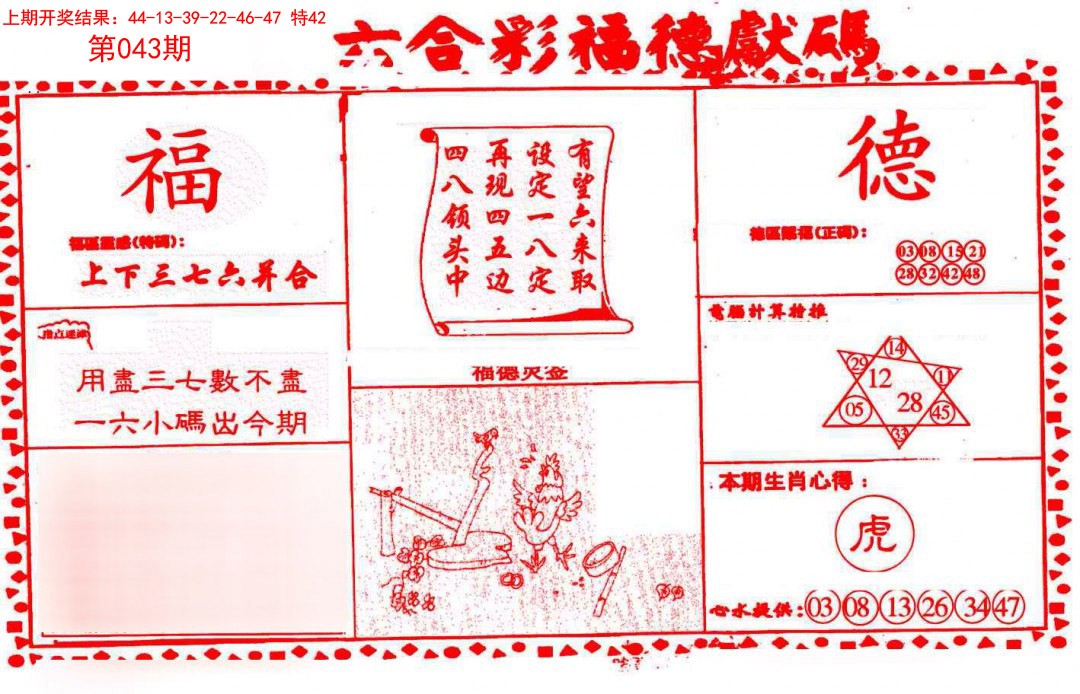 上期开奖结果：44-13-39-22-46-47 特42
第043期
六合彩福德獻碼
福
福區靈感(特碼)：
上下三七六并合
指点迷津
用盡三七數不盡
一六小碼出今期
有望六来取
设定一八定
再现四五边
四八领头中
福德灵签
德
德區賜福(正碼)：
03 08 15 21
28 32 42 48
電腦計算拾推
14
29
12
1
05
28
45
33
本期生肖心得：
虎
心水提供：03 08 13 26 34 47